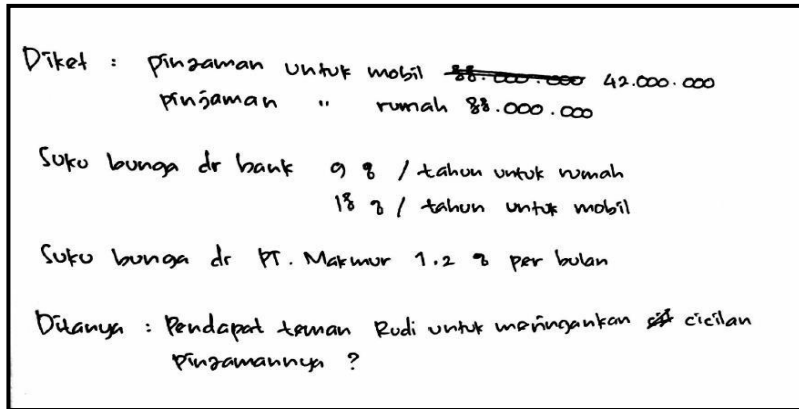 Diket : pinjaman untuk mobil 88.000.000 42.000.000
pinjaman " rumah 88.000.000
Suku bunga dr bank 9 % / tahun untuk rumah
18 % / tahun untuk mobil
Suku bunga dr PT. Makmur 1.2 % per bulan
Ditanya : Pendapat teman Rudi untuk meringankan cicilan
pinjamannya ?